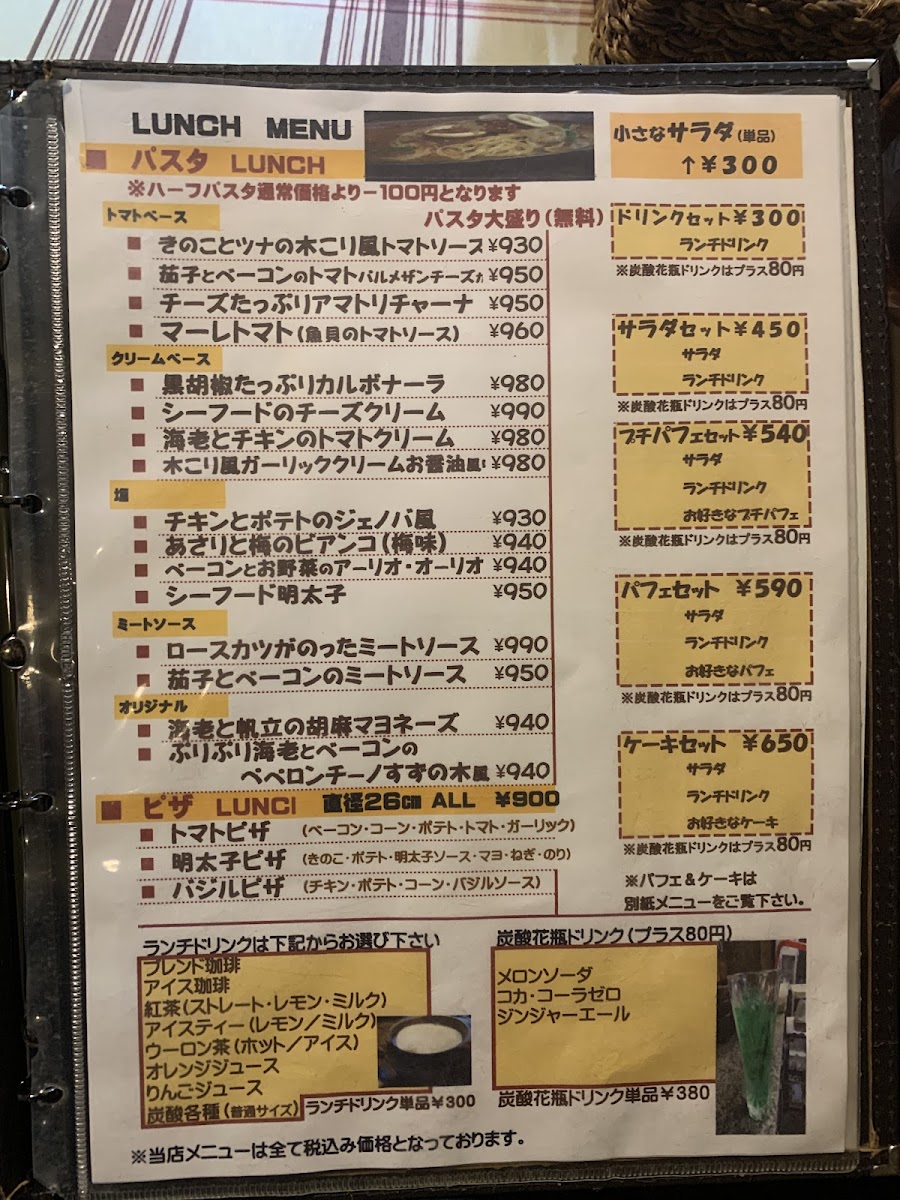 LUNCH MENU
■ パスタ LUNCH
※ハーフパスタ通常価格より－100円となります
パスタ大盛り(無料)
トマトベース
■ きのことツナの木こり風トマトソース ¥930
■ 茄子とベーコンのトマトパルメザンチーズ ¥950
■ チーズたっぷりアマトリチャーナ ¥950
■ マーレトマト(魚貝のトマトソース) ¥960
クリームベース
■ 黒胡椒たっぷりカルボナーラ ¥980
■ シーフードのチーズクリーム ¥990
■ 海老とチキンのトマトクリーム ¥980
■ 木こり風ガーリッククリームお醤油風 ¥980
塩
■ チキンとポテトのジェノバ風 ¥930
■ あさりと梅のビアンコ(梅味) ¥940
■ ベーコンとお野菜のアーリオ・オーリオ ¥940
■ シーフード明太子 ¥950
ミートソース
■ ロースカツがのったミートソース ¥990
■ 茄子とベーコンのミートソース ¥950
オリジナル
■ 海老と帆立の胡麻マヨネーズ ¥940
■ ぷりぷり海老とベーコンの
ペペロンチーノすずの木風 ¥940
■ ピザ LUNCH 直径26㎝ ALL ¥900
■ トマトピザ (ベーコン・コーン・ポテト・トマト・ガーリック)
■ 明太子ピザ (きのこ・ポテト・明太子ソース・マヨ・ねぎ・のり)
■ バジルピザ (チキン・ポテト・コーン・バジルソース)
小さなサラダ(単品)
↑¥300
ドリンクセット¥300
ランチドリンク
※炭酸花瓶ドリンクはプラス80円
サラダセット¥450
サラダ
ランチドリンク
※炭酸花瓶ドリンクはプラス80円
プチパフェセット¥540
サラダ
ランチドリンク
お好きなプチパフェ
※炭酸花瓶ドリンクはプラス80円
パフェセット ¥590
サラダ
ランチドリンク
お好きなパフェ
※炭酸花瓶ドリンクはプラス80円
ケーキセット ¥650
サラダ
ランチドリンク
お好きなケーキ
※炭酸花瓶ドリンクはプラス80円
※パフェ&ケーキは
別紙メニューをご覧下さい。
ランチドリンクは下記からお選び下さい
ブレンド珈琲
アイス珈琲
紅茶(ストレート・レモン・ミルク)
アイスティー(レモン／ミルク)
ウーロン茶(ホット／アイス)
オレンジジュース
りんごジュース
炭酸各種(普通サイズ)
ランチドリンク単品¥300
炭酸花瓶ドリンク(プラス80円)
メロンソーダ
コカ・コーラゼロ
ジンジャーエール
炭酸花瓶ドリンク単品¥380
※当店メニューは全て税込み価格となっております。